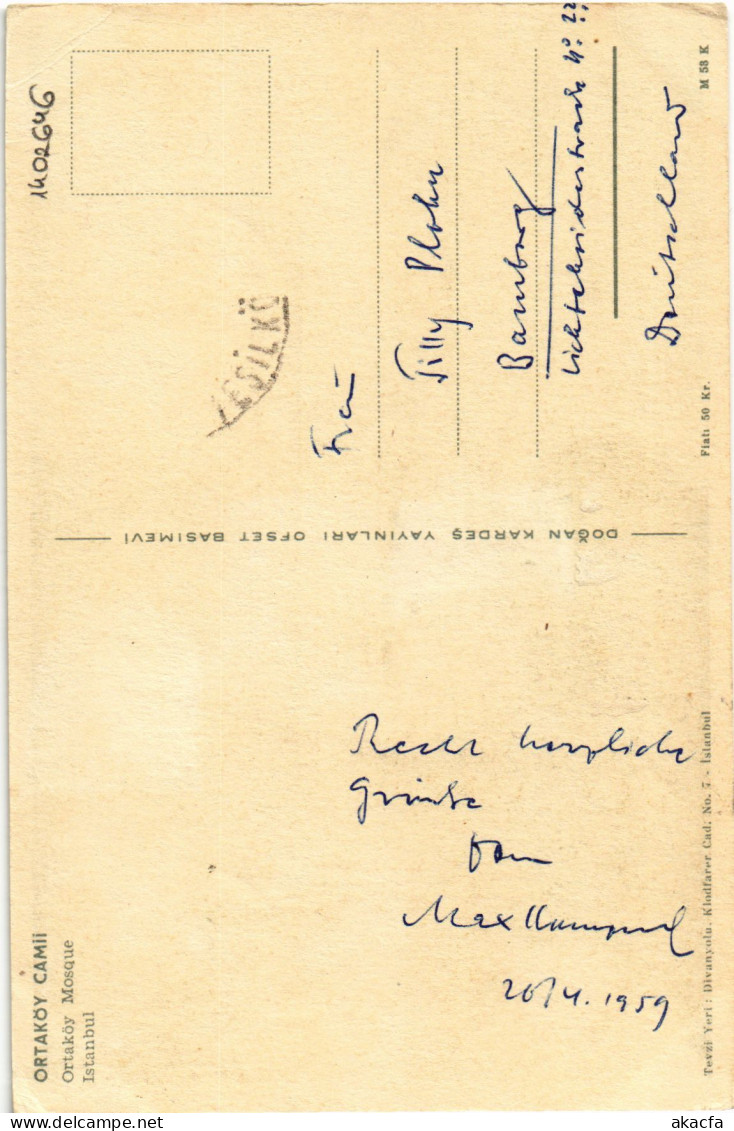 ORTAKÖY CAMİİ
Ortaköy Mosque
Istanbul
Recht herzliche
Grüße
von
Max
20/4. 1959
Tevzi Yeri: Divanyolu, Klodfarer Cad: No. 7 - İstanbul
DOĞAN KARDEŞ YAYINLARI OFSET BASIMEVİ
1402646
YEŞİLKÖ
Frau
Tilly Plohn
Bamberg
Deutschland
Fiatı 50 Kr.
M 53 K
delcampe.net
akacfa